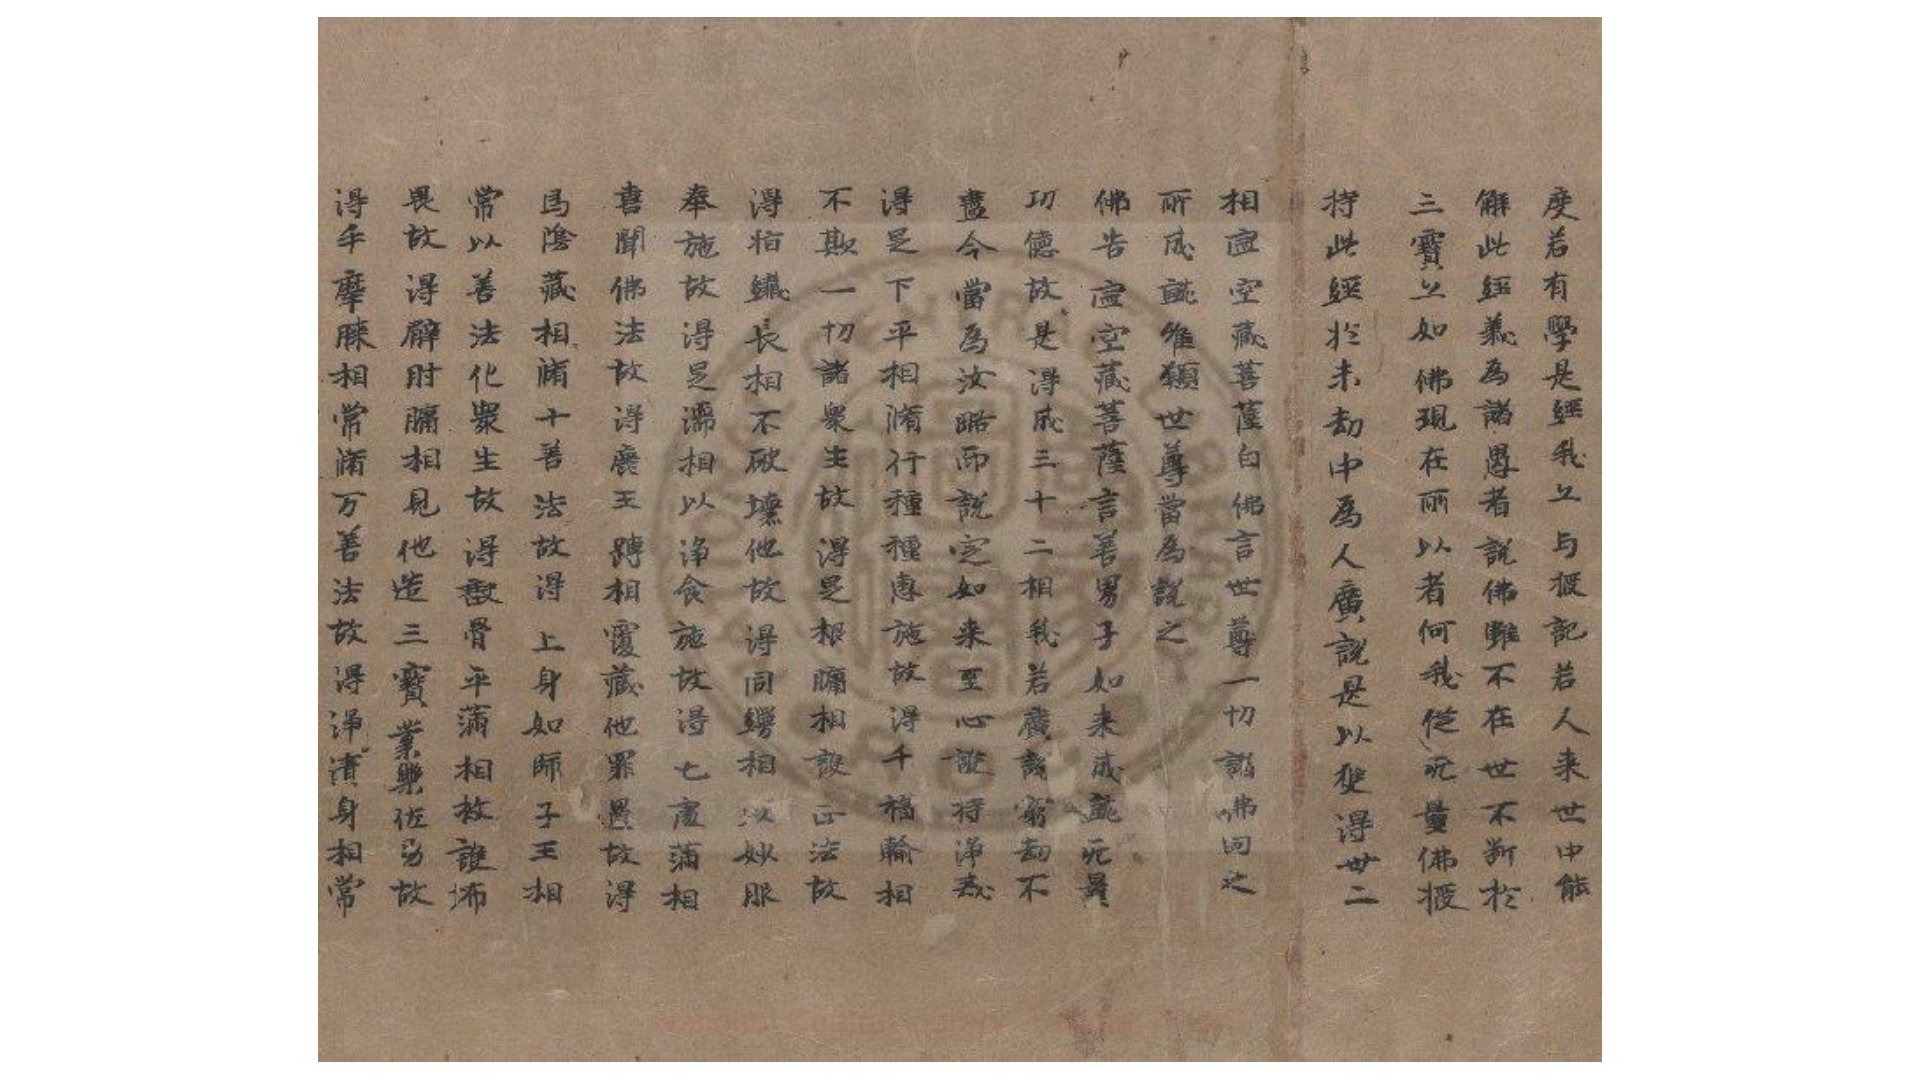 度若有學是經我上与授記若人来世中能
解此經義為諸愚者說佛雖不在世不断於
三寶上如佛現在所以者何我從无量佛授
持此經於未劫中為人廣說是以從得卅二
相虛空藏菩薩白佛言世尊一切諸佛同之
所成就唯願世尊當為說之
佛告虛空藏菩薩言善男子如来成就无量
功德故是得成三十二相我若廣說窮劫不
盡今當為汝略而說之如来至心護持淨戒
得是下平相脩行種種惠施故得千福輪相
不欺一切諸衆生故得是根牖相護正法故
得指纖長相不破壞他故得同縵相以妙服
奉施故得是濡相以淨食施故得七處滿相
喜聞佛法故得鹿王蹲相覆藏他罪過故得
馬陰藏相脩十善法故得上身如師子王相
常以善法化衆生故得骨平滿相救護怖
畏故得臂肘牖相見他造三寶業樂佐助故
得手摩膝相常脩万善法故得淨潰身相常